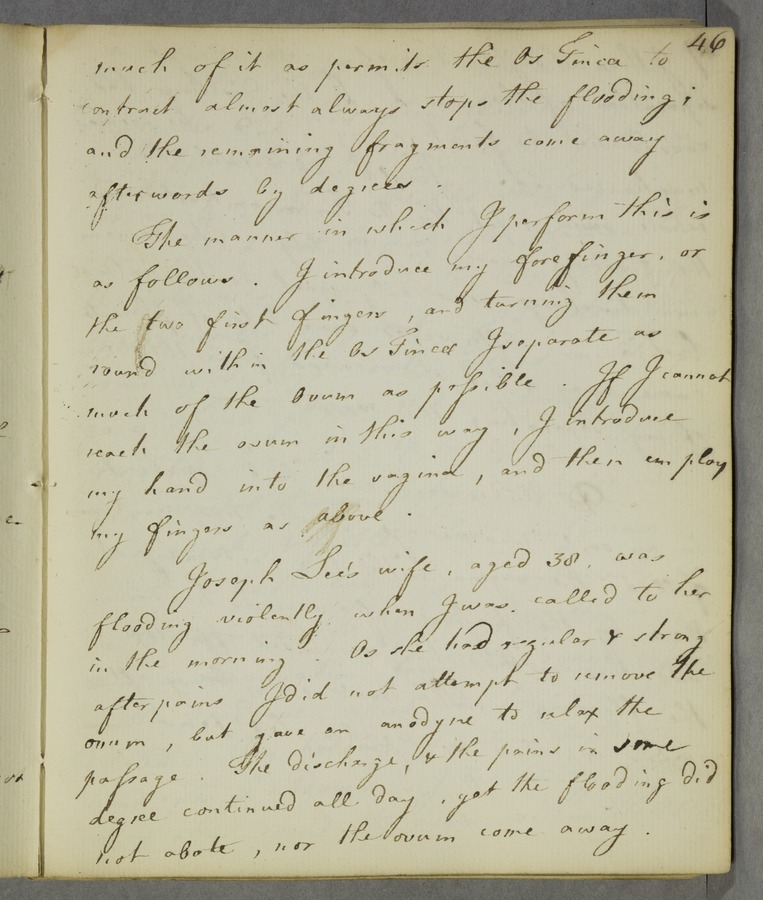 46
much of it as permits the Os Tincæ to
contract almost always stops the flooding;
and the remaining fragments come away
afterwords by degrees.
The manner in which I perform this is
as follows. I introduce my forefinger, or
the two first fingers, and turning them
round within the Os Tincæ I separate as
much of the Ovum as possible. If I cannot
reach the ovum in this way, I introduce
my hand into the vagina, and then employ
my fingers as above.
Joseph Lee's wife, aged 38, was
flooding violently when I was called to her
in the morning. As she had regular & strong
afterpains I did not attempt to remove the
ovum, but gave an anodyne to relax the
passage. The discharge, & the pains in some
degree continued all day, yet the flooding did
not abate, nor the ovum come away.